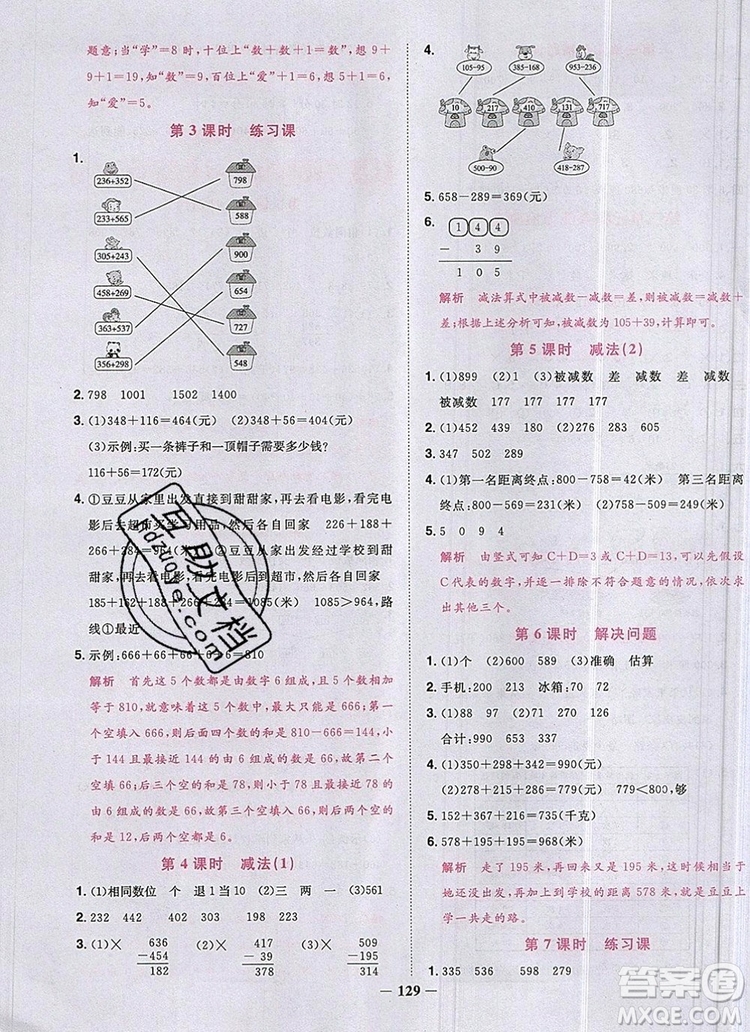 题意；当“学”＝8时，十位上“数＋数＋1”，可以想9＋
9＋1＝19，知“数”＝9，百位上“爱”＋1＝6，想5＋1＝6，
知“爱”＝5。
第3课时 练习课
1.
236+352 798
233+565 588
305+243 900
458+269 654
363+537 727
356+298 548
2. 798 1001 1502 1400
3. (1)348＋116＝464(元) (2)348＋56＝404(元)
(3)示例：买一条裤子和一顶帽子需要多少钱？
116＋56＝172(元)
4. ①豆豆从家里出发直接到甜甜家，看电影，看完电
影后去超市买学习用品，然后各自回家 226＋188＋
②豆豆从家里出发经过超市到甜甜
家，看电影，看完电影后，然后各自回家
185＋ ＋188＋266＋ ＝1085(米) 1085＞ ，路
线①最近
5. 示例：666＋66＋66＋6＋6＝810
解析 首先这5个数都是由数字6组成，且5个数的
和等于810，就意味着这5个数中，最大只能是666；
第一个空填666，剩下的4个数的和是810－666＝144，小
于144且最接近144的由6组成的数是66，故第二个
空填66；剩下的3个数的和是78，小于78且最接近78的由6
组成的数是66，故第三个空填66；剩下的2个空的和是12，
故第四个空和第五个空都填6。
第4课时 减法(1)
1. (1)相同数位 个 退1当10 (2)三 两 一 (3)561
2. 232 442 202 402
3. (1)× 636 (2)× 417 (3)× 509
－454 －39 －195
182 378 314
4.
105-95 385-168 953-236
10 417 490 217 717
500-90 418-287
5. 658－289＝369(元)
6.
1 4 4
－ 3 9
1 0 5
解析 减法算式中被减数－减数＝差，则被减数＝减数
＋差；根据上述分析可知，被减数为105＋39，计算即可。
第5课时 减法(2)
1. (1)899 (2)1 (3)被减数 差 减数 差 减数
被减数
2. (1)452 439 180 (2)276 283 635
3. 347 502 289
4. (1)第一名距离终点：800－758＝42(米) 第三名距离
终点：800－509＝291(米) (2)758－509＝249(米)
5. 5 0 9 4
解析 由竖式可知C＋D＝3或C＋D＝13，可以先假设
C代表的数字，并逐一排除不符合题意的情况，依次求出
其他三个。
第6课时 解决问题
1. (1)个 (2)600 589 (3)准确 估算
2. 手机：200 217 冰箱：70 72
3. (1)88 97 (2)71 270 126
合计：990 653 337
4. (1)350＋298＋342＝990(元)
(2)278＋215＋286＝779(元) 779＜800，够
5. 152＋367＋216＝735(千克)
6. 578＋195＋195＝968(米)
解析 走了195米，回来又走了195米，这时候相当于
她还没出发，再加上到学校的距离578米，就是豆豆上
学一共走的路。
第7课时 练习课
1. 335 535 698 509
129
豆助文档
dzuoye.com
答案圈
MXQE.COM